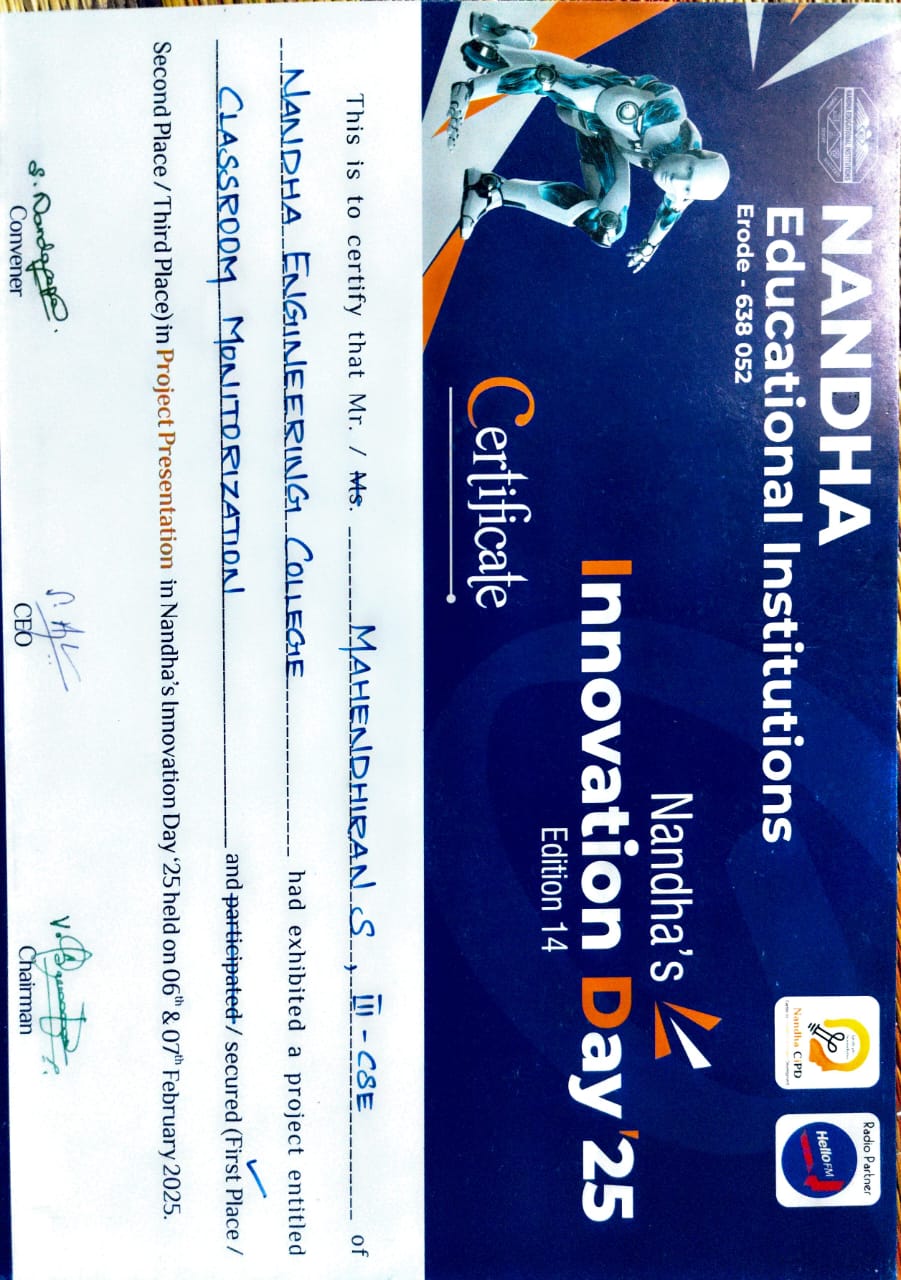 NANDHA EDUCATIONAL INSTITUTIONS
NANDHA
Educational Institutions
Erode - 638 052
Nandha CiPD
Radio Partner
Hello FM
Nandha's
Innovation Day '25
Edition 14
Certificate
This is to certify that Mr. / Ms. MAHENDHIRAN S, III - CSE of
NANDHA ENGINEERING COLLEGE had exhibited a project entitled
CLASSROOM MONITORIZATION and participated / secured (First Place /
Second Place / Third Place) in Project Presentation in Nandha's Innovation Day '25 held on 06th & 07th February 2025.
Convener
CEO
Chairman